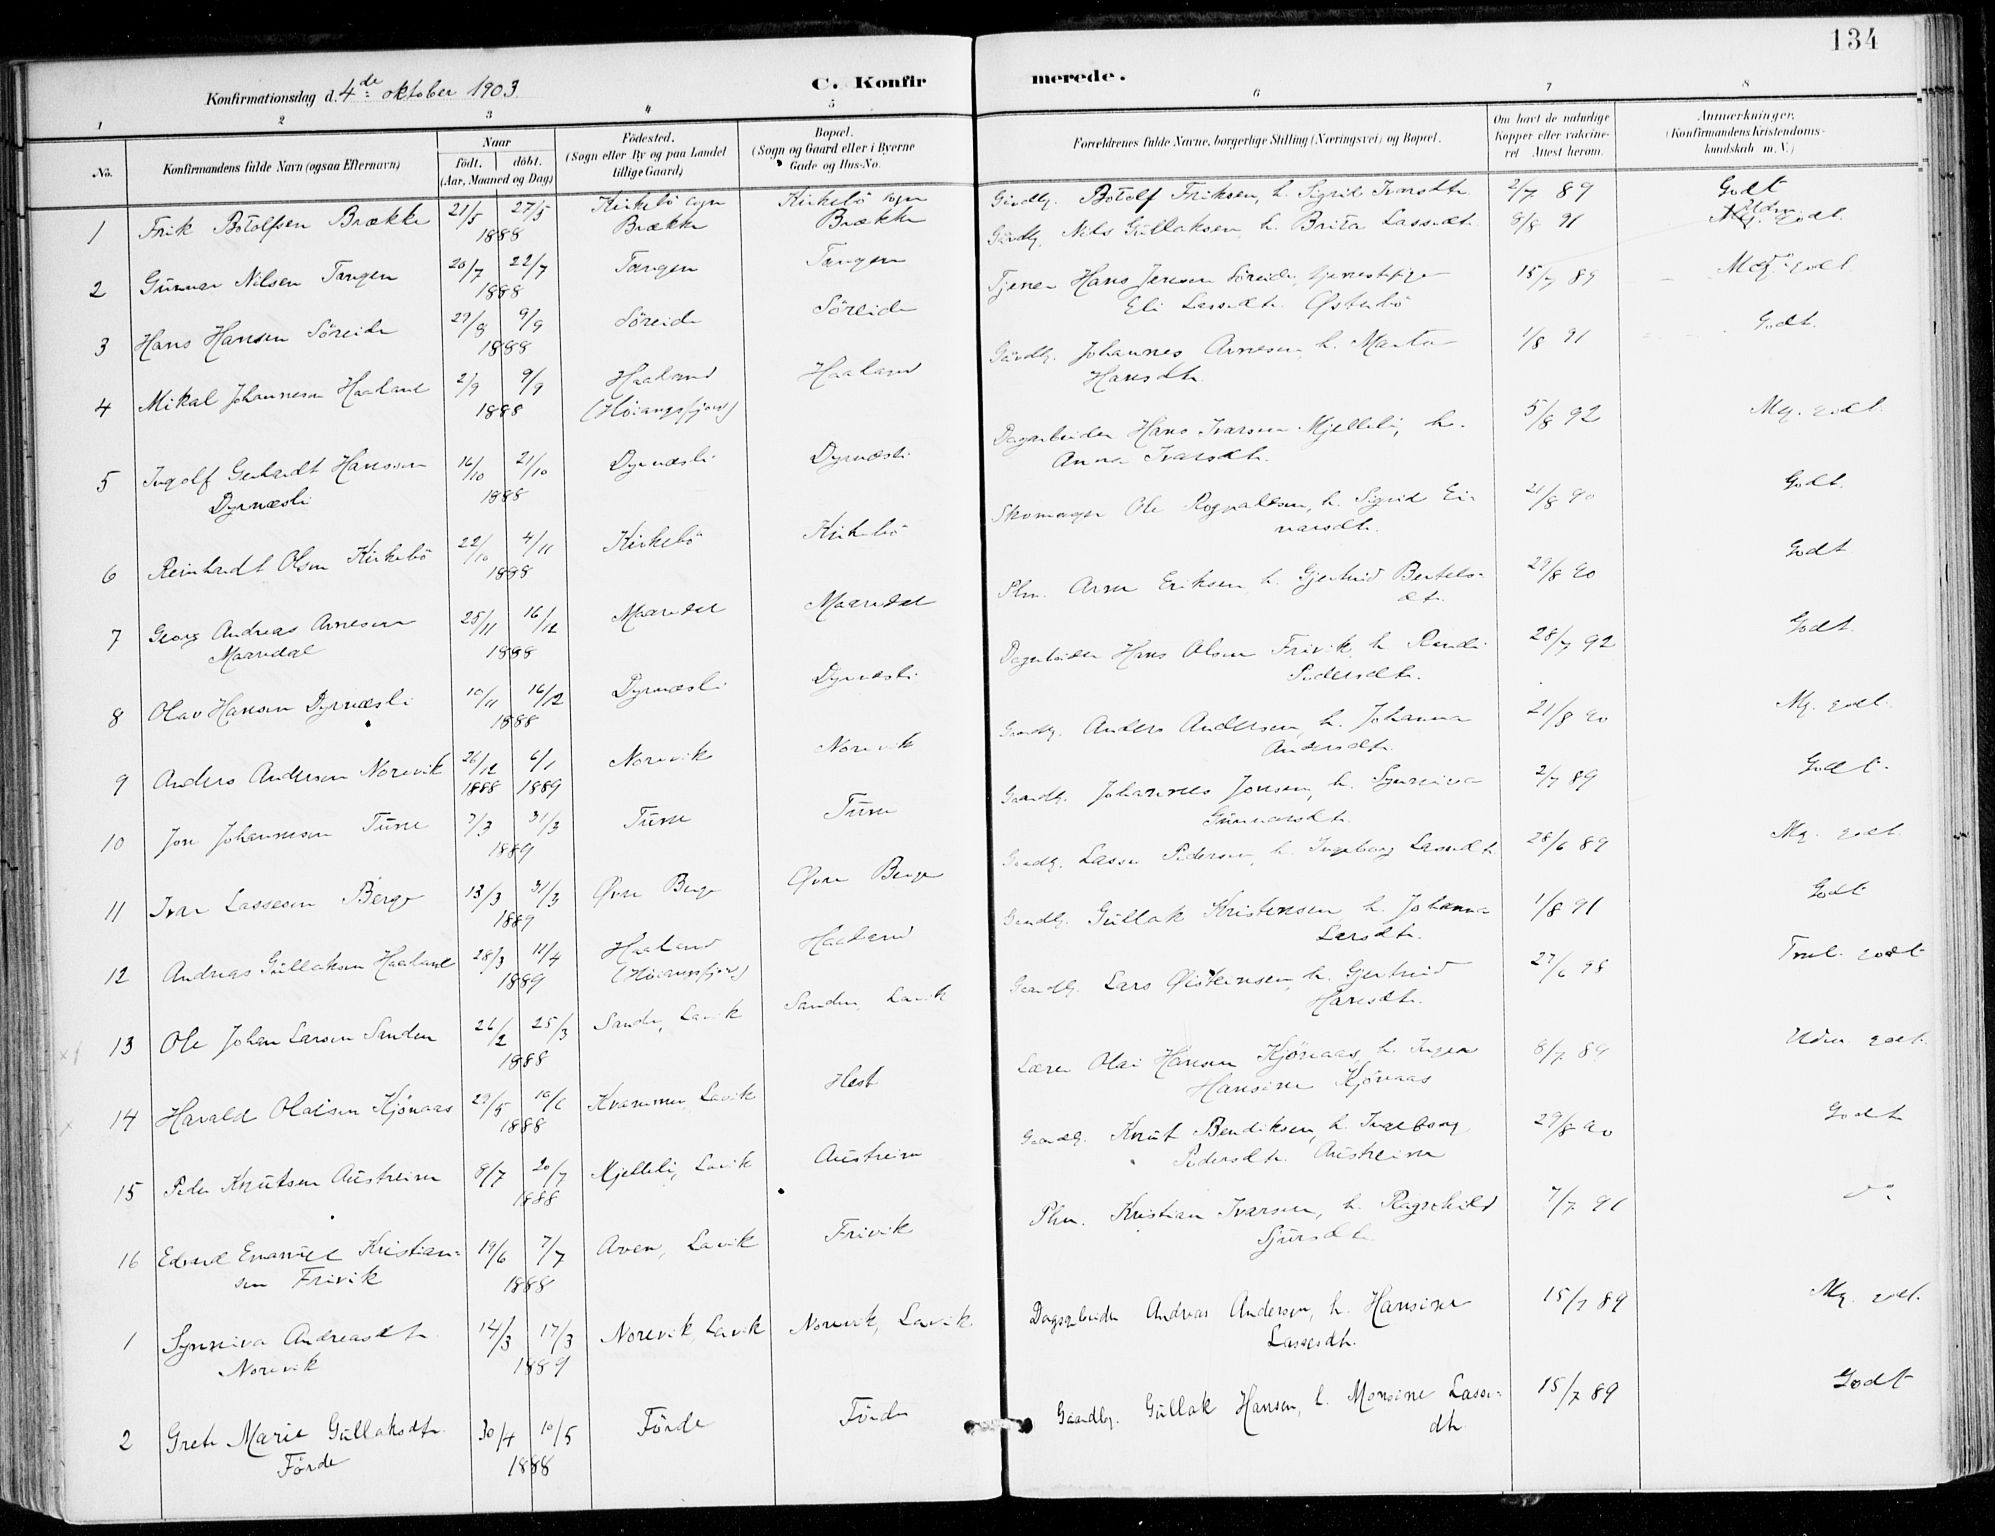 134
Konfirmationsdag d. 4de oktober 1903
C. Konfir merede.
1 2 3 4 5 6 7 8
No.
Konfirmandens fulde Navn (ogsaa Efternavn)
Naar
födt. döbt.
(Aar, Maaned og Dag)
Födested.
(Sogn eller By og paa Landet
tillige Gaard)
Bopæl.
(Sogn og Gaard eller i Byerne
Gade og Hus-No.
Forældrenes fulde Navne, borgerlige Stilling (Næringsvei) og Bopæl.
Om havt de naturlige
Kopper eller vakcine-
ret. Attest herom.
Anmærkninger.
(Konfirmandens Kristendoms-
kundskab m. V.)
Kirkebö sogn Kirkebö sogn Gaardbr. Botolf Eriksen, h. Sigrid 2/7 89 Godt
1 Erik Botolfsen Brække 21/5 27/5 Brække Brække
1888
Gaardbr. Nils Gullaksen, h. Brita Lassedt. 8/8 91 Udm. godt.
2 Gunnar Nilsen Tangen 20/7 22/7 Tangen Tangen
1888
Tjener Hans Jensen Söreide, tjenestepige 15/7 89 Mg. godt.
Eli Lassedt. Østebö
3 Hans Hansen Söreide 29/8 9/9 Söreide Söreide
1888
Gaardbr. Johannes Arnesen, h. Marta 1/8 91 Godt.
Hansdt.
4 Mikal Johannesen Haaland 2/9 9/9 Haaland Haaland
1888 (Höiangsfjord)
Dagarbeider Hans Ivarsen Mjelleli, h. 5/8 92 Mg. godt.
Anna Ivarsdt.
5 Ingolf Gerhardt Hanssen 16/10 21/10 Dyrnæsli Dyrnæsli
Dyrnæsli 1888
Skomager Ole Rognaldsen, h. Sigrid Ei- 21/8 90 Godt.
narsdt.
6 Reinhardt Olsen Kirkebö 22/10 4/11 Kirkebö Kirkebö
1888
Plm. Arne Eriksen, h. Gjertrud Bertels- 29/8 90 Godt
dt.
7 Georg Andreas Arnesen 25/11 16/12 Maaredal Maaredal
Maaredal 1888
Dagarbeider Hans Olsen Frivik, h. Randi 28/7 92 Godt.
Pedersdt.
8 Olav Hansen Dyrnæsli 10/11 16/12 Dyrnæsli Dyrnæsli
1888
Gaardbr. Anders Andersen, h. Johanna 21/8 90 Mg. godt.
Andersdt.
9 Anders Andersen Norevik 26/12 6/1 Norevik Norevik
1888 1889
Gaardbr. Johannes Jonsen, h. Synneva 2/7 89 Godt.
Gunnarsdt.
10 Jon Johannesen Tune 7/3 31/3 Tune Tune
1889
Gaardbr. Lasse Pedersen, h. Ingeborg Lassedt. 28/6 89 Mg. godt.
11 Ivar Lassesen Berge 13/3 31/3 Øvre Berge Øvre Berge
1889
Gaardbr. Gullak Kristensen, h. Johanna 1/8 91 Godt
Larsdt.
12 Andreas Gullaksen Haaland 28/3 11/4 Haaland Haaland
1889 (Höiangsfjord)
Gaardbr. Lars Øistensen, h. Gjertrud 27/6 98 godt
Hansdt.
13 Ole Johan Larsen Sanden 26/2 25/3 Sande, Lavik Sanden, Lavik
1888
Lærer Olai Hansen Kjönaas, h. Inger 8/7 89 Udm. godt.
Hansine Kjönaas
14 Harald Olaisen Kjönaas 29/5 10/6 Kvammen, Lavik Hest
1888
Gaardbr. Knut Bendiksen, h. Ingeborg 29/8 90 Godt
Pedersdt. Austreim
15 Peder Knutsen Austreim 8/7 20/7 Mjelleli, Lavik Austreim
1888
Plm. Kristian Ivarsen, h. Ragnhild 7/7 91 do
Sjursdt.
16 Edvard Emanuel Kristian- 19/6 7/7 Aven, Lavik Frivik
sen Frivik 1888
Dagarbeider Andreas Andersen, h. Hansine 15/7 89 Mg. godt.
Lassesdt.
1 Synneva Andreasdt. 14/3 17/3 Norevik, Lavik Norevik, Lavik
Norevik 1889
Gaardbr. Gullak Hansen, h. Monsine Lasse- 15/7 89 Godt
dt.
2 Grete Marie Gullaksdt. 30/4 10/5 Förde Förde
Förde 1888